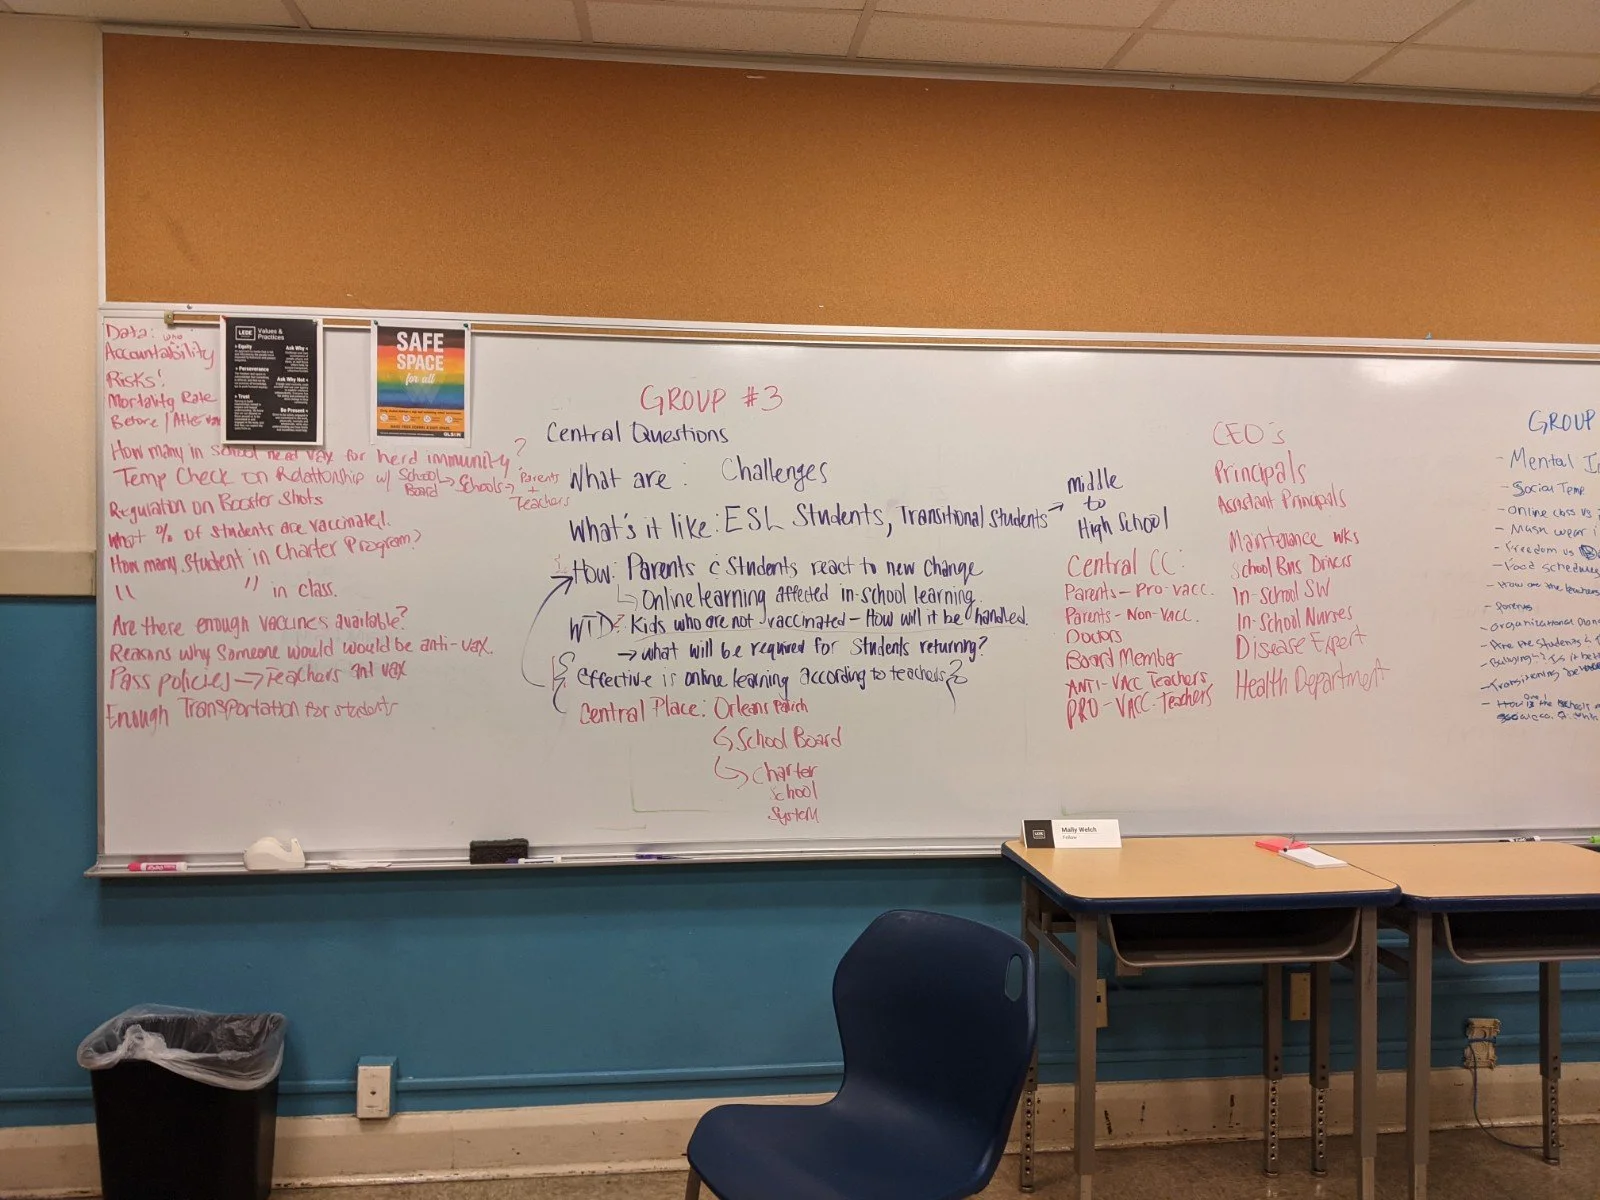 Data: who
Accountability
Risks!
Mortality Rate
Before / After
How many in school need vax for herd immunity?
Temp Check on Relationship w/ School Board → Schools → Parents + Teachers
Regulation on Booster Shots
What % of students are vaccinated!
How many student in Charter Program?
" " in class.
Are there enough vaccines available?
Reasons why someone would would be anti-vax.
Pass policies → Teachers ant vax
Enough Transportation for students
LEDE
Values & Practices
Equity
Ask Why
Perseverance
Ask Why Not
Trust
Be Present
SAFE
SPACE
for all
GLSEN
GROUP #3
Central Questions
What are: Challenges
What's it like: ESL Students, Transitional Students → middle to High School
How: Parents c Students react to new change
Online learning affected in-school learning.
WTD? Kids who are not vaccinated - How will it be handled.
→ what will be required for students returning?
{ effective is online learning according to teachers }
Central Place: Orleans Parish
School Board
Charter
School
System
Central CC:
Parents - Pro-vacc.
Parents - Non-Vacc.
Doctors
Board Member
ANTI-VACC Teachers
PRO-VACC-Teachers
CEO's
Principals
Assistant Principals
Maintenance wks
School Bus Drivers
In-School SW
In-School Nurses
Disease Expert
Health Department
GROUP
- Mental
- Social Temp
- Online class vs
- Mask wear
- Freedom vs
- Food schedule
- How are the teachers
- Parents
- Organizational
- Are the students
- Bullying - Is it
- Transitioning
Mally Welch
Fellow